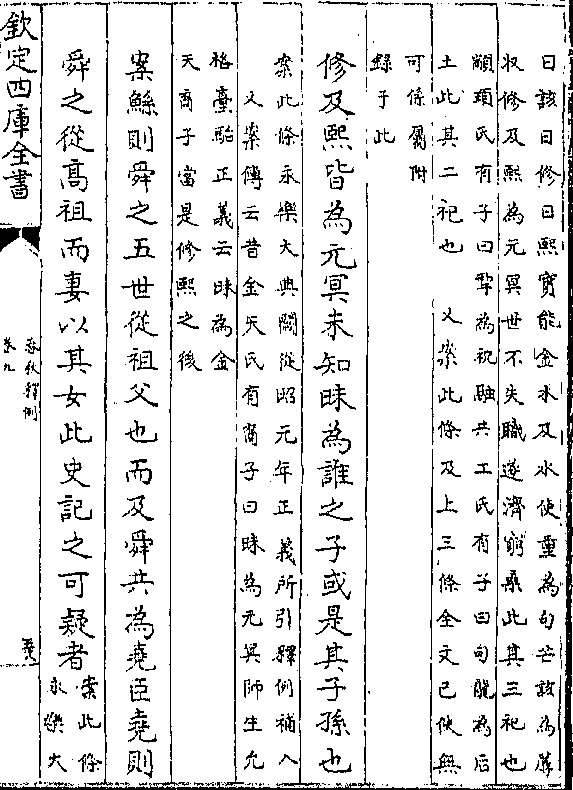 曰該曰修曰熙實能金木及水使重為句芒該為蓐
收修及熙為元冥世不失職遂濟窮桑此其三祀也
顓頊氏有子曰犂為祝融共工氏有子曰句龍為后
土此其二祀也　又案此條及上三條全文已佚無
可係屬附
錄于此
修及熙皆為元冥未知昧為誰之子或是其子孫也
案此條永樂大典闕從昭元年正義所引釋例補入
又案傳云昔金天氏有裔子曰昧為元冥師生允
格臺駘正義云昧為金
天裔子當是修熙之後
案鯀則舜之五世從祖父也而及舜共為堯臣堯則
舜之從高祖而妻以其女此史記之可疑者
案此條
永樂大
欽定四庫全書
春秋釋例
卷九